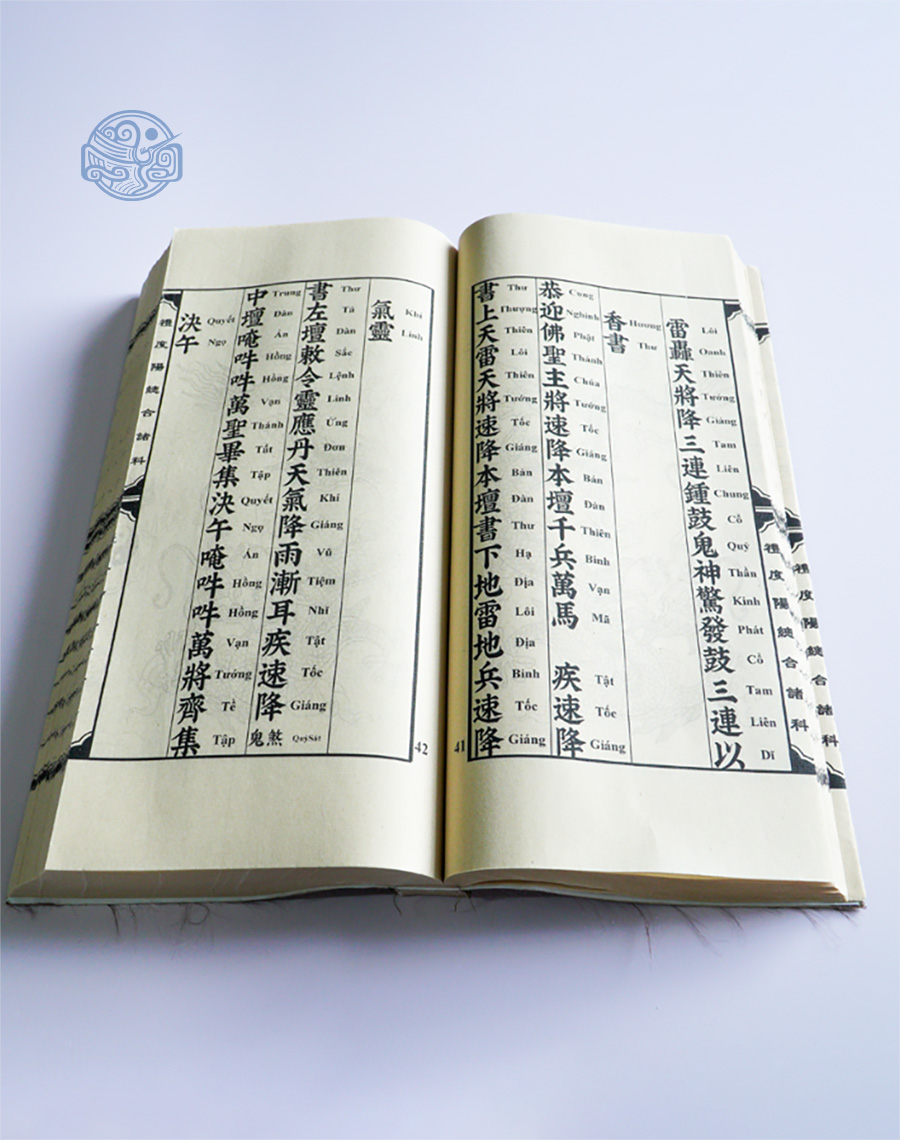 禮度陽總合諸科
禮度陽總合諸科
雷轟天將降三連鍾鼓鬼神驚發鼓三連以
Lôi Oanh Thiên Tướng Giáng Tam Liên Chung Cổ Quỷ Thần Kinh Phát Cổ Tam Liên Dĩ
香書
Hương Thư
恭迎佛聖主將速降本壇千兵萬馬 疾速降
Cung Nghinh Phật Thánh Chúa Tướng Tốc Giáng Bản Đàn Thiên Binh Vạn Mã Tật Tốc Giáng
書上天雷天將速降本壇書下地雷地兵速降
Thư Thượng Thiên Lôi Thiên Tướng Tốc Giáng Bản Đàn Thư Hạ Địa Lôi Địa Binh Tốc Giáng
41
42
氣靈
Khí Linh
書左壇敕令靈應丹天氣降雨漸耳疾速降
Thư Tả Đàn Sắc Lệnh Linh Ứng Đơn Thiên Khí Giáng Vũ Tiệm Nhĩ Tật Tốc Giáng
中壇唵吽吽萬聖畢集決午唵吽吽萬將齊集 鬼煞
Trung Đàn Án Hồng Hồng Vạn Thánh Tất Tập Quyết Ngọ Án Hồng Hồng Vạn Tướng Tề Tập Quỷ Sát
決午
Quyết Ngọ
禮度陽總合諸科